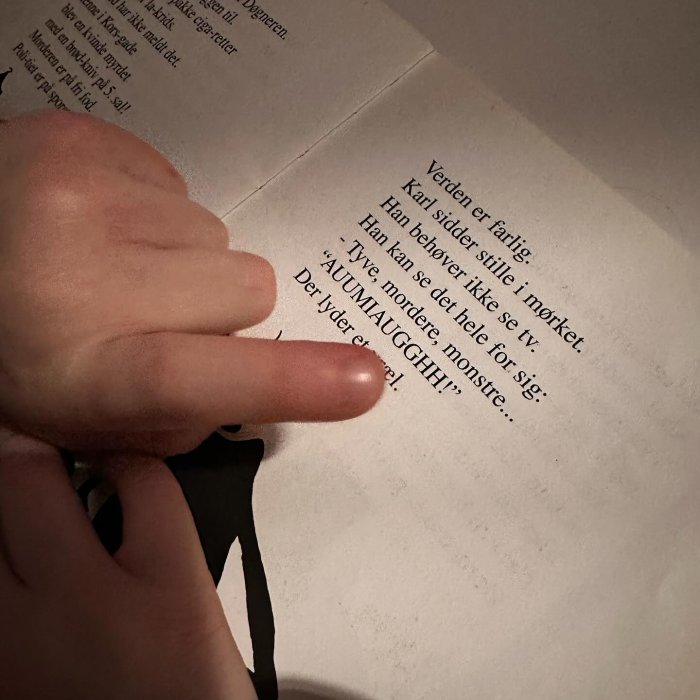 Døgneren.
ggen til.
la-krids.
pakke ciga-retter
har ikke meldt det.
i Kors-gade
blev en kvinde myrdet
med en brød-kniv på 5. sal!
Morderen er på fri fod.
Poli-tiet er på
Verden er farlig.
Karl sidder stille i mørket.
Han behøver ikke se tv.
Han kan se det hele for sig:
- Tyve, mordere, monstre...
“AUUMIAUGGHH!”
Der lyder et